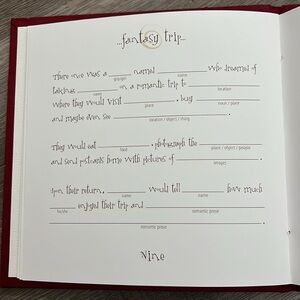 ...fantasy trip...
There once was a ________ named ________ who dreamed of
guy/girl name
taking ________ on a romantic trip to ________
name location
where they would visit ________, buy ________
place noun / place
and maybe even see ________
location / object / thing
They would eat ________, photograph the ________
food place / object / people
and send postcards home with pictures of ________.
images
Upon their return, ________ would tell ________ how much
name name
________ enjoyed their trip and ________
he/she romantic prose
________
romantic prose
Nine